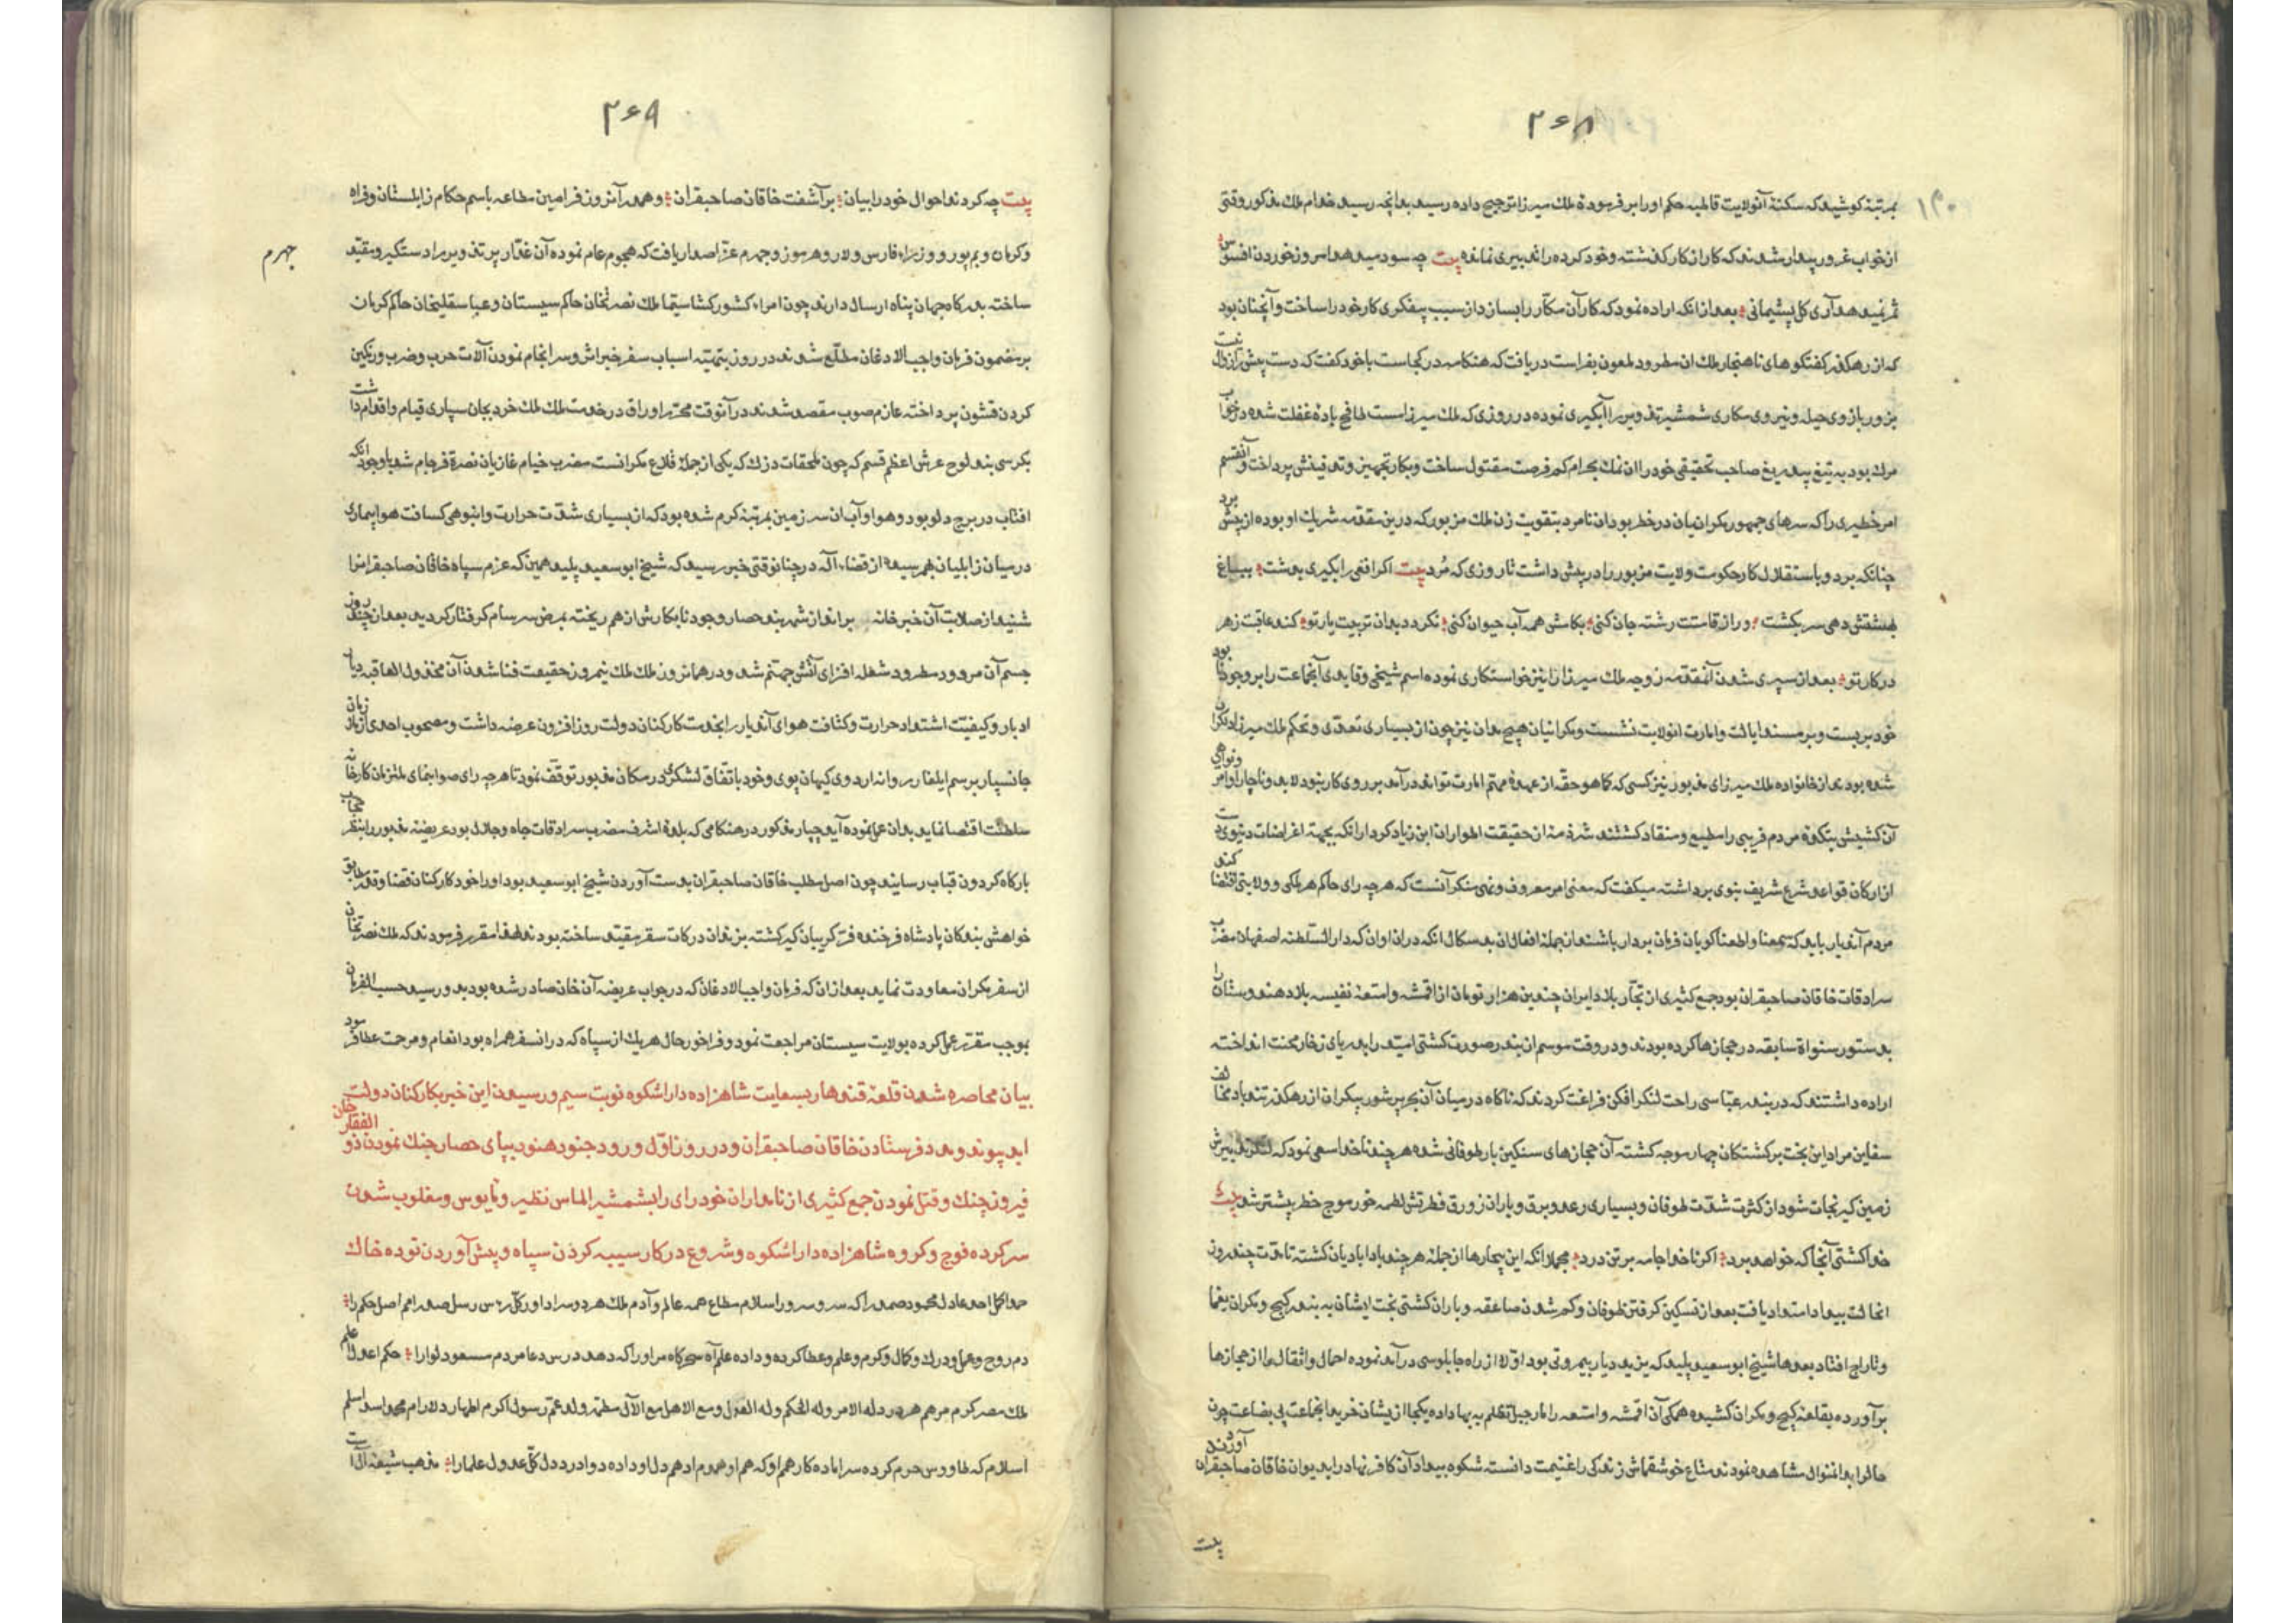 ۲۶۸
۱۳۰
بمرتبۀ کوشید که سکنۀ آنولایت قاطبه حکم او را بر فرمودۀ ملک میرزا ترجیح داده رسید بدانچه رسید خدام ملک مذکور وقتی
از خواب غرور بیدار شدند که کار از کار گذشته و خود کرده را تدبیری نمانده بیت چه سود میدهد امروز خوردن افسوس
ثمر نمیدهد آری گل پشیمانی بعد از انکه اراده نمود که کار آن مکّار را بسازد از سبب بیفکری کار خود را ساخت و آنچنان بود
که از رهگذر گفتگوهای ناهنجار ملک ان مطرود ملعون بفراست دریافت که هنگامه در کجاست باخود گفت که دست پیش را زوال نیست
بزور بازوی حیله و نیروی مکاری شمشیر تذویر را آبگیری نموده در روزی که ملک میرزا مست طافح بادۀ غفلت شده در خواب
مرک بود به تیغ بیدریغ صاحب تحقیقی خود را ان نمک بحرام کم فرصت مقتول ساخت و بکار تجهیز و تدفینش پرداخت و آنقسم
امر خطیری را که سرهای جمهور مکرانیان در خطر بود ان نامرد بتقویت زن ملک مزبور که درین مقدمه شریک او بوده از پیش برد
چنانکه برد و باستقلال کار حکومت ولایت مزبور را در پیش داشت تا روزی که مُرد بیت اگر افعی را بگیری بدشت بیساغ
بهشتش دهی سر بکشت و راز قامتت رشته جان کنی بکاسش همه آب حیوان کنی نگردد بدان تربیت یار تو کند عاقبت زهر
در کار تو بعد از سپری شدن آنمقدمه زوجه ملک میرزا را نیز خواستکاری نموده اسم شیخی و قایدی آنجماعت را بر وجود نابود
خود بر بست و بر مسند ایالت و امارت انولایت نشست و مکرانیان هیچمدان نیز چون از بسیاری تعدّی و تحکم ملک میرزا دلگران
شده بودند از خانواده ملک میرزای مذبور نیز کسی که کماهو حقّه از عهدۀ مهمّ امارت تواند در آمد بر روی کار بنود لابد و ناچار اوامر ونواهی
آن کشیش بتکدۀ مردم فریبی را مطیع و منقاد کشتند شرذمۀ از حقیقت اطوار ان ابن زیاد کردار انکه بجهة اغراضات دنیوی دست
از ارکان قواعد شرع شریف بنوی برداشته میکفت که معنی امر معروف ونهی منکر آنست که هر چه رای حاکم هر ملکی و ولایتی اقتضا کند
مردم آندیار باید که سمعنا و اطعنا کویان فرمان بردار باشند از جملۀ افعال ان بدسکال انکه دران اوان که دار السّلطنه اصفهان مضرب
سرادقات خاقان صاحبقران بود جمع کثیری از تجّار بلاد ایران چندین هزار تومان از اقمشه و امتعۀ نفیسه بلاد هندوستان را
بدستور سنواة سابقه در جهازها کرده بودند و در وقت موسم ان بندر صورت کشتی امید را بدریای زخار محنت انداخته
اراده داشتند که در بندر عبّاسی راحت لنکر افکن فراغت کردند که ناکاه در میان آن بحر پر شور بیکران از رهکذر تند باد مخالف
سفاین مراد این بخت برکشتکان چهار موجه کشته آن جهازهای سنکین بار طوفانی شده هر چند ناخدا سعی نمود که لنکر تدبیرش
زمین کیر نجات شود از کثرت شدّت طوفان و بسیاری رعد و برق و باران زورق فطرتش لطمه خور موج خطر بیشتر شد بیت
خدا کشتی آنجا که خواهد برد اکر ناخدا جامه بر تن درد مجملا انکه این بیچارها از جملۀ هر چه بادا بادیان کشته تا مدّت چند روز
انحالت بیداد امتداد یافت بعد از تسکین گرفتن طوفان و کم شدن صاعقه و باران کشتی بخت ایشان به بندر کیج و مکران یغما
و تاراج افتاد بعدها شیخ ابو سعید پلید که یزید دیار بیمروتی بود اوّلا از راه چابلوسی در آمد نموده احمال و اثقال را از جهازها
بر آورده بقلعۀ کیج و مکران کشیده همکی آن اقمشه و امتعه را مارجیل تظلم به بها داده یکجا از ایشان خرید انجماعت بی بضاعت چون
حال را بدانمنوال مشاهده نمودند متاع خوشقماش زندکی را غنیمت دانسته شکوه بیداد آن کافر نهاد را بدیوان خاقان صاحبقران آوردند
بیت
۲۶۹
بیت چه کردند احوال خود را بیان بر آشفت خاقان صاحبقران و همدر آنروز فرامین مطاعه باسم حکام زابلستان و فراه
و کرمان و بم پور و وزراء فارس و لار و هرموز و جهرم عزّ اصدار یافت که هجوم عام نموده آن غدّار پر تذویر را دستکیر و مقیّد
جهرم
ساخته بدرکاه جهان پناه ارسال دارند چون امراء کشورکشا سیّما ملک نصرتخان حاکم سیستان و عباسقلیخان حاکم کرمان
بر مضمون فرمان واجب الاذعان مطّلع شدند در روز بتهیّته اسباب سفر خیر اثر و سرانجام نمودن آلات حرب و ضرب و رنکین
کردن قشون پرداخته عازم صوب مقصد شدند در آنوقت محرّر اوراق در خدمت ملک ملک خرد بجان سپاری قیام و اقدام داشت
بکرسی بند لوح عرش اعظم قسم که چون ملحقات دزک که یکی از جملۀ قلاع مکرانست مضرب خیام غازیان نصرة فرجام شد باوجود انکه
افتاب در برج دلو بود و هوا و آب ان سر زمین بمرتبۀ کرم شده بود که از بسیاری شدّت حرارت و انبوهی کسافت هوا بیماری
در میان زابلیان بهم رسیده از قضاء آله در چنانوقتی خبر رسید که شیخ ابو سعید پلید همین که عزم سپاه خاقان صاحبقرانرا
شنید از صلابت آن خبر خانه برانداز شهربند حصار وجود نابکارش از هم ریخته بمرض سرسام کرفتار کردید بعد از چند روز
جسم آن مردود مطرود شعله افزای آتش جهنّم شد و در همانروز ملک ملک نیمروز حقیقت فنا شدن آن مخذول العاقبه دیار
ادبار و کیفیّت اشتداد حرارت و کثافت هوای آندیار را بخدمت کارکنان دولت روز افزون عرضه داشت و مصحوب احدی از ملازمان
جانسپار برسم ایلغار روانه اردوی کیهان پوی و خود باتفّاق لشکری در مکان مذبور توقّف نمود تا هر چه رای صوابنمای ملتزمان کارخانه
سلطنت اقتضا نماید بدان عمل نموده آید چپار مذکور در هنکامی که بلدۀ اشرف مضرب سرادقات جاه و جلال بود عریضه مذبور را بنظر حجاب
بارکاه کردون قباب رسانید چون اصل مطلب خاقان صاحبقران بدست آوردن شیخ ابو سعید بود او را خود کارکنان قضا و قدر مطابق
خواهش بندکان پادشاه فرخنده فر کریبان کیر کشته بزندان درکات سقر مقیّد ساخته بودند لهذا مقرر فرمودند که ملک نصرتخان
از سفر مکران معاودت نماید بعد از ان که فرمان واجب الاذعان که در جواب عریضه آن خان صادر شده بود بدو رسید حسب الفرمان
بموجب مقرّر عمل کرده بولایت سیستان مراجعت نمود و فراخور حال هر یک از سپاه که در انسفر همراه بود انعام و مرحمت عطا فرمود
بیان محاصره شدن قلعۀ قندهار بسعایت شاهزاده دارا شکوه نوبت سیم و رسیدن این خبر بکارکنان دولت
ابد پیوند و مدد فرستادن خاقان صاحبقران و در روز اوّل ورود جنود هنود بپای حصار جنک نمودن ذو الفقار خان
فیروز جنک و قتل نمودن جمع کثیری از نامداران خود رای را بشمشیر الماس نظیر و مایوس و مغلوب شدن
سر کرده فوج و کروه شاهزاده دارا شکوه و شروع در کار سیبه کردن سپاه و پیش آوردن توده خاک
حمدا کل احد عادل محمود صمد را که سر و سرور اسلام مطاع همه عالم و آدم ملک هر دو سرا داور کل رسل صدر امم اصل حکم را
دم روح و عمل و درک و کمال و کرم و علم و عطا کرده و داده علم آه سحرکاه مر او را که دهد درس دعا مردم مسعود لوا را حکم اعدل علم
ملک مصر کرم مرهم هر درد له الامر وله الحکم وله العدل ومع الاهل مع الآل مطهر ولد عمّ رسول اکرم اطهار دلارام محمد اسد اسلم
اسلام که طاوس حرم کرده سر اماده کار همم او که هم او همدم ادهم دل او داده دوا درد دل کلّ عدول علما را مذهب شیعه آل است